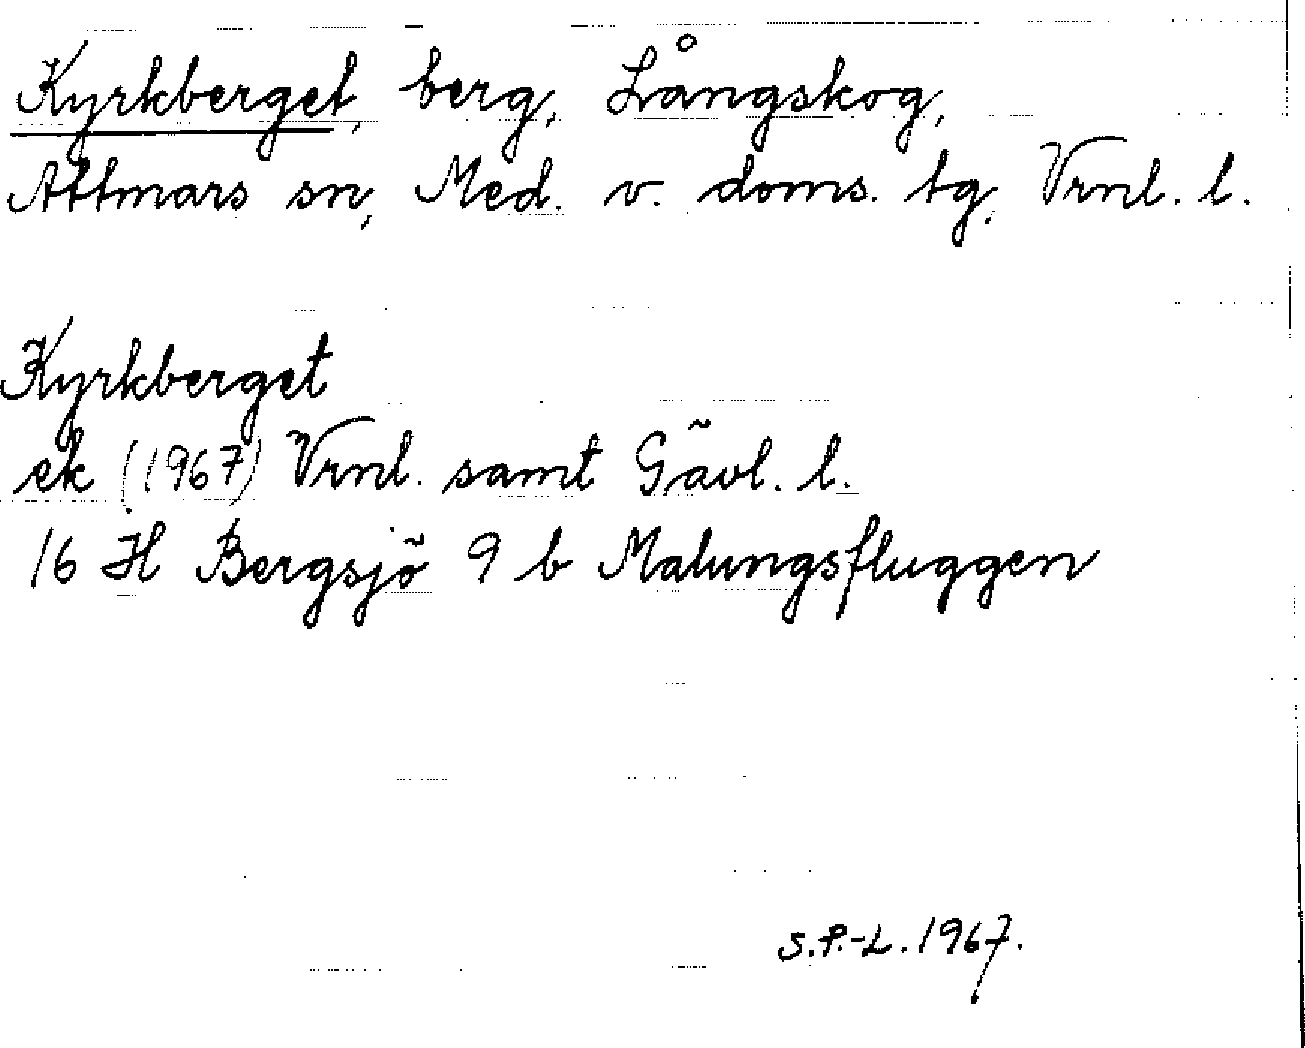 Kyrkberget, berg, Långskog,
Attmars sn, Med. v. doms. tg, Vrnl. l.
Kyrkberget
ek (1967) Vrnl. samt Gävl. l.
16 H Bergsjö 9 b Malungsfluggen
S.P.-L. 1967.